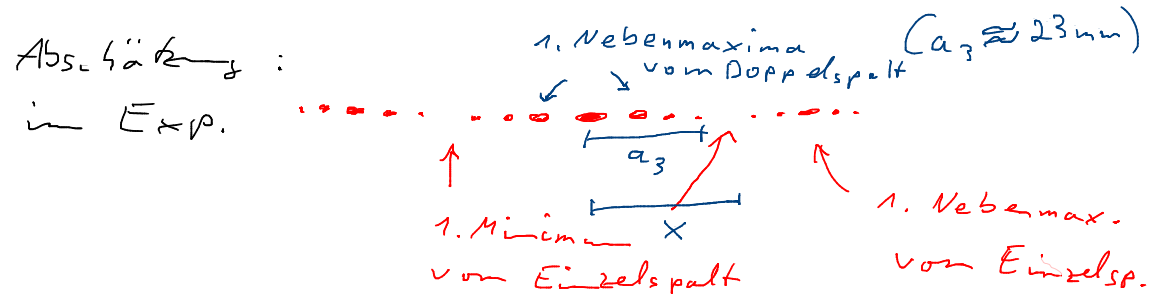 Abschätzung :
im Exp.
1. Nebenmaxima
vom Doppelspalt
(a₃ ≈ 23mm)
a₃
x
1. Minimum
vom Einzelspalt
1. Nebenmax.
vom Einzelsp.